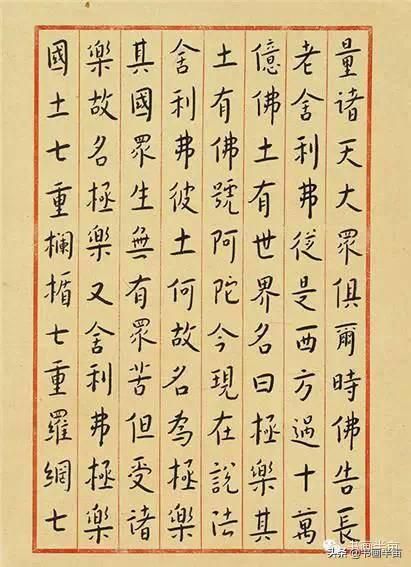 量諸天大眾俱爾時佛告長
老舍利弗從是西方過十萬
億佛土有世界名曰極樂其
土有佛號阿陀今現在說法
舍利弗彼土何故名為極樂
其國眾生無有眾苦但受諸
樂故名極樂又舍利弗極樂
國土七重欄楯七重羅網七
书画半亩
头条 @书画半亩